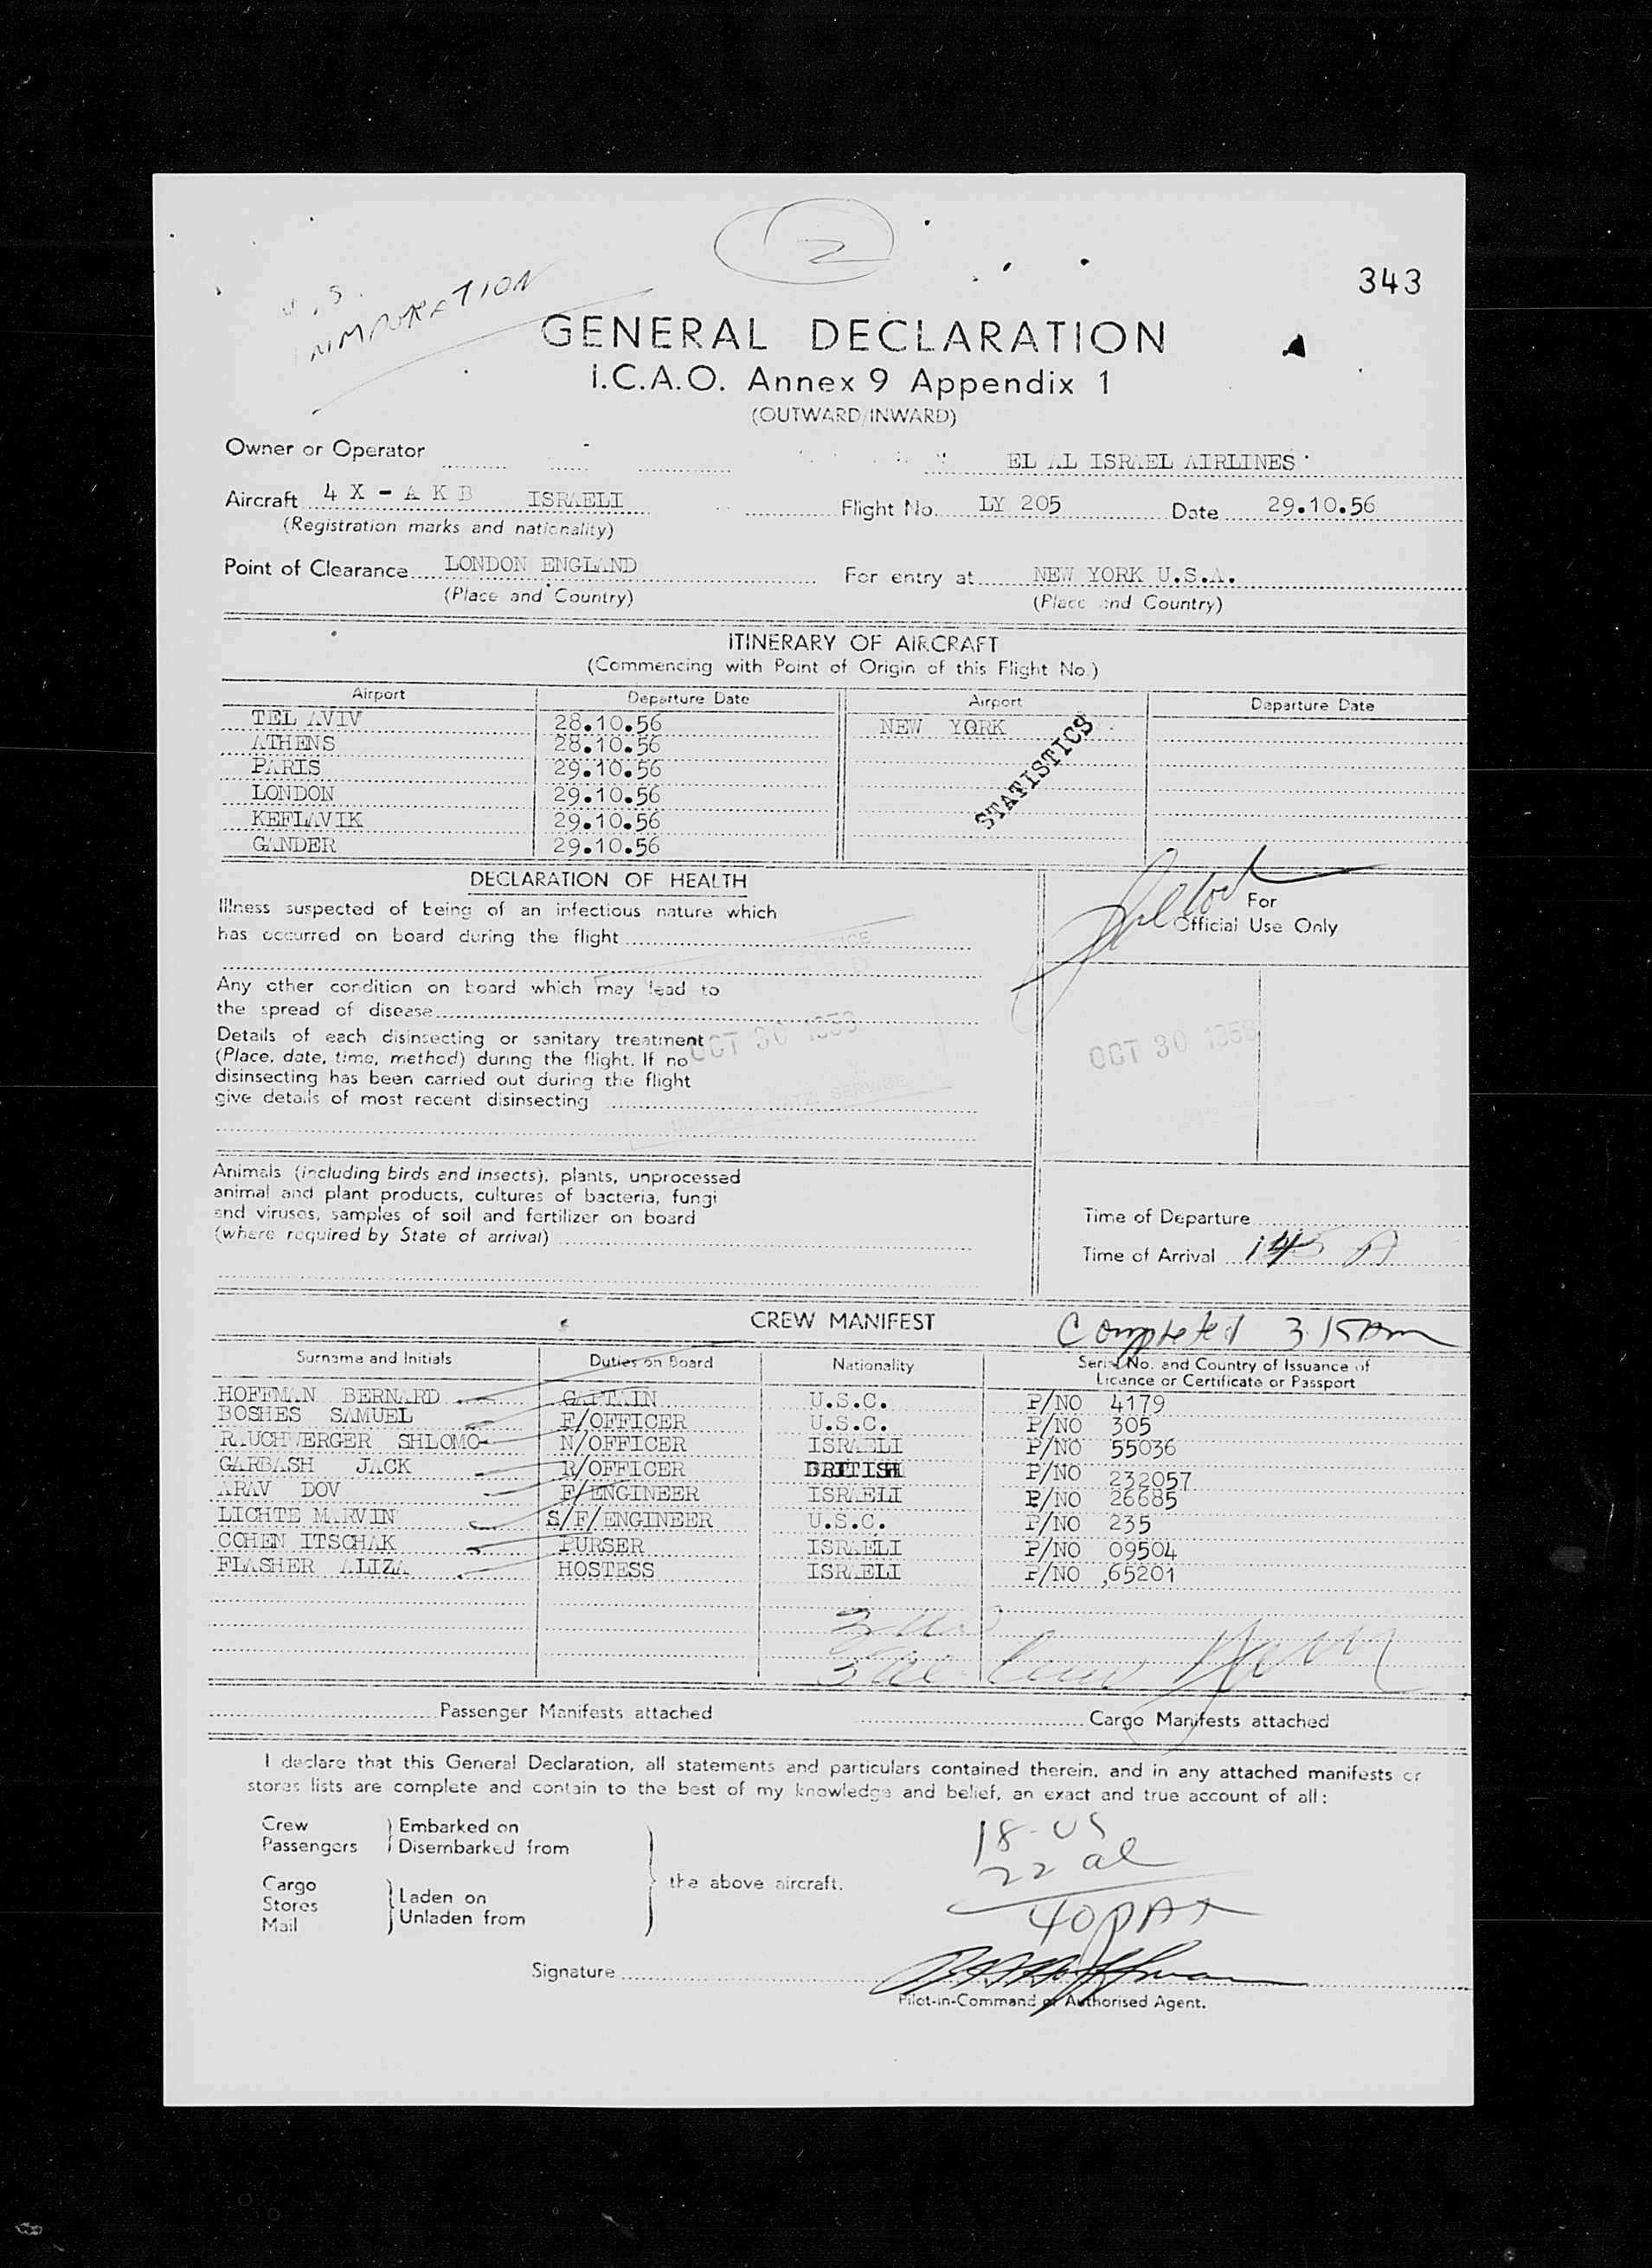 2
343
U.S.
GENERAL DECLARATION
I.C.A.O. Annex 9 Appendix 1
(OUTWARD/INWARD)
Owner or Operator EL AL ISRAEL AIRLINES
Aircraft 4 X - A K B ISRAELI Flight No. LY 205 Date 29.10.56
(Registration marks and nationality)
Point of Clearance LONDON ENGLAND For entry at NEW YORK U.S.A.
(Place and Country) (Place and Country)
ITINERARY OF AIRCRAFT
(Commencing with Point of Origin of this Flight No.)
Airport Departure Date Airport Departure Date
TEL AVIV 28.10.56 NEW YORK
ATHENS 28.10.56
PARIS 29.10.56
LONDON 29.10.56
KEFLAVIK 29.10.56
GANDER 29.10.56
STATISTICS
DECLARATION OF HEALTH
For
Official Use Only
Illness suspected of being of an infectious nature which
has occurred on board during the flight
Any other condition on board which may lead to
the spread of disease
Details of each disinsecting or sanitary treatment
(Place, date, time, method) during the flight. If no
disinsecting has been carried out during the flight
give details of most recent disinsecting
OCT 30 1956
OCT 30 1956
Animals (including birds and insects), plants, unprocessed
animal and plant products, cultures of bacteria, fungi
and viruses, samples of soil and fertilizer on board
(where required by State of arrival)
Time of Departure
Time of Arrival 145 A
CREW MANIFEST
Completed 3 15 Am
Surname and Initials Duties on Board Nationality Serial No. and Country of Issuance of
Licence or Certificate or Passport
HOFFMAN BERNARD CAPTAIN U.S.C. P/NO 4179
BOSHES SAMUEL F/OFFICER U.S.C. P/NO 305
RAUCHWERGER SHLOMO N/OFFICER ISRAELI P/NO 55036
GARBASH JACK R/OFFICER BRITISH P/NO 232057
ARAV DOV F/ENGINEER ISRAELI P/NO 26685
LICHTE MARVIN S/F/ENGINEER U.S.C. P/NO 235
COHEN ITSCHAK PURSER ISRAELI P/NO 09504
FLASHER ALIZA HOSTESS ISRAELI P/NO 65201
Passenger Manifests attached Cargo Manifests attached
I declare that this General Declaration, all statements and particulars contained therein, and in any attached manifests or
stores lists are complete and contain to the best of my knowledge and belief, an exact and true account of all:
Crew Embarked on
Passengers Disembarked from
the above aircraft.
Cargo
Stores Laden on
Mail Unladen from
18 - US
22 al
40 PAX
Signature
Pilot-in-Command or Authorised Agent.